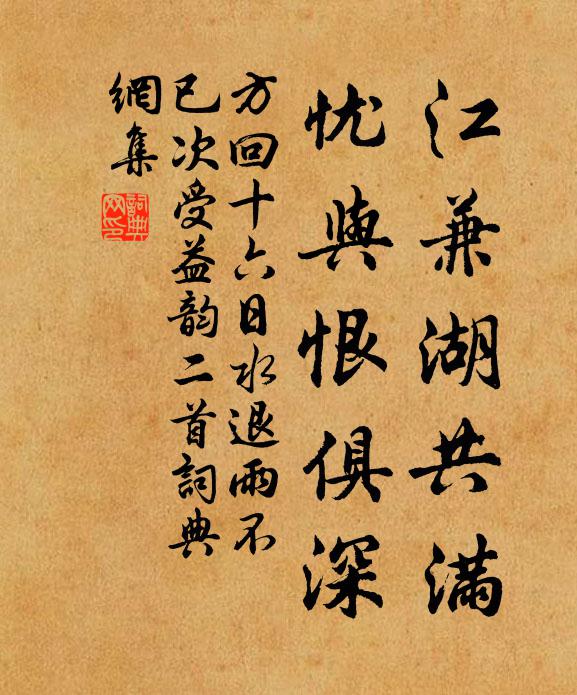 江兼湖共满
忧與恨俱深
方回十六日水退雨不
已次受益韵二首詞典
網集
詞典
网印